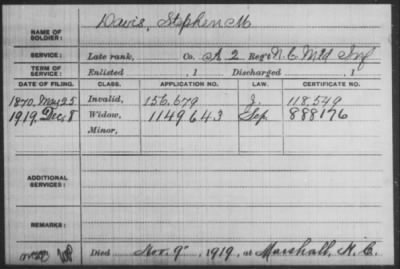 Davis, Stephen M
NAME OF SOLDIER:
SERVICE: Late rank, Co. A, 2 Reg't N.C. Mtd Inf
TERM OF SERVICE: Enlisted , 1 Discharged , 1
DATE OF FILING. CLASS. APPLICATION NO. LAW. CERTIFICATE NO.
1870, May 25 Invalid, 156.679 118.549
1919, Dec 8 Widow, 1149643 Sep 888176
Minor,
ADDITIONAL SERVICES:
REMARKS:
Died Nov. 9", 1919, at Marshall, N.C.